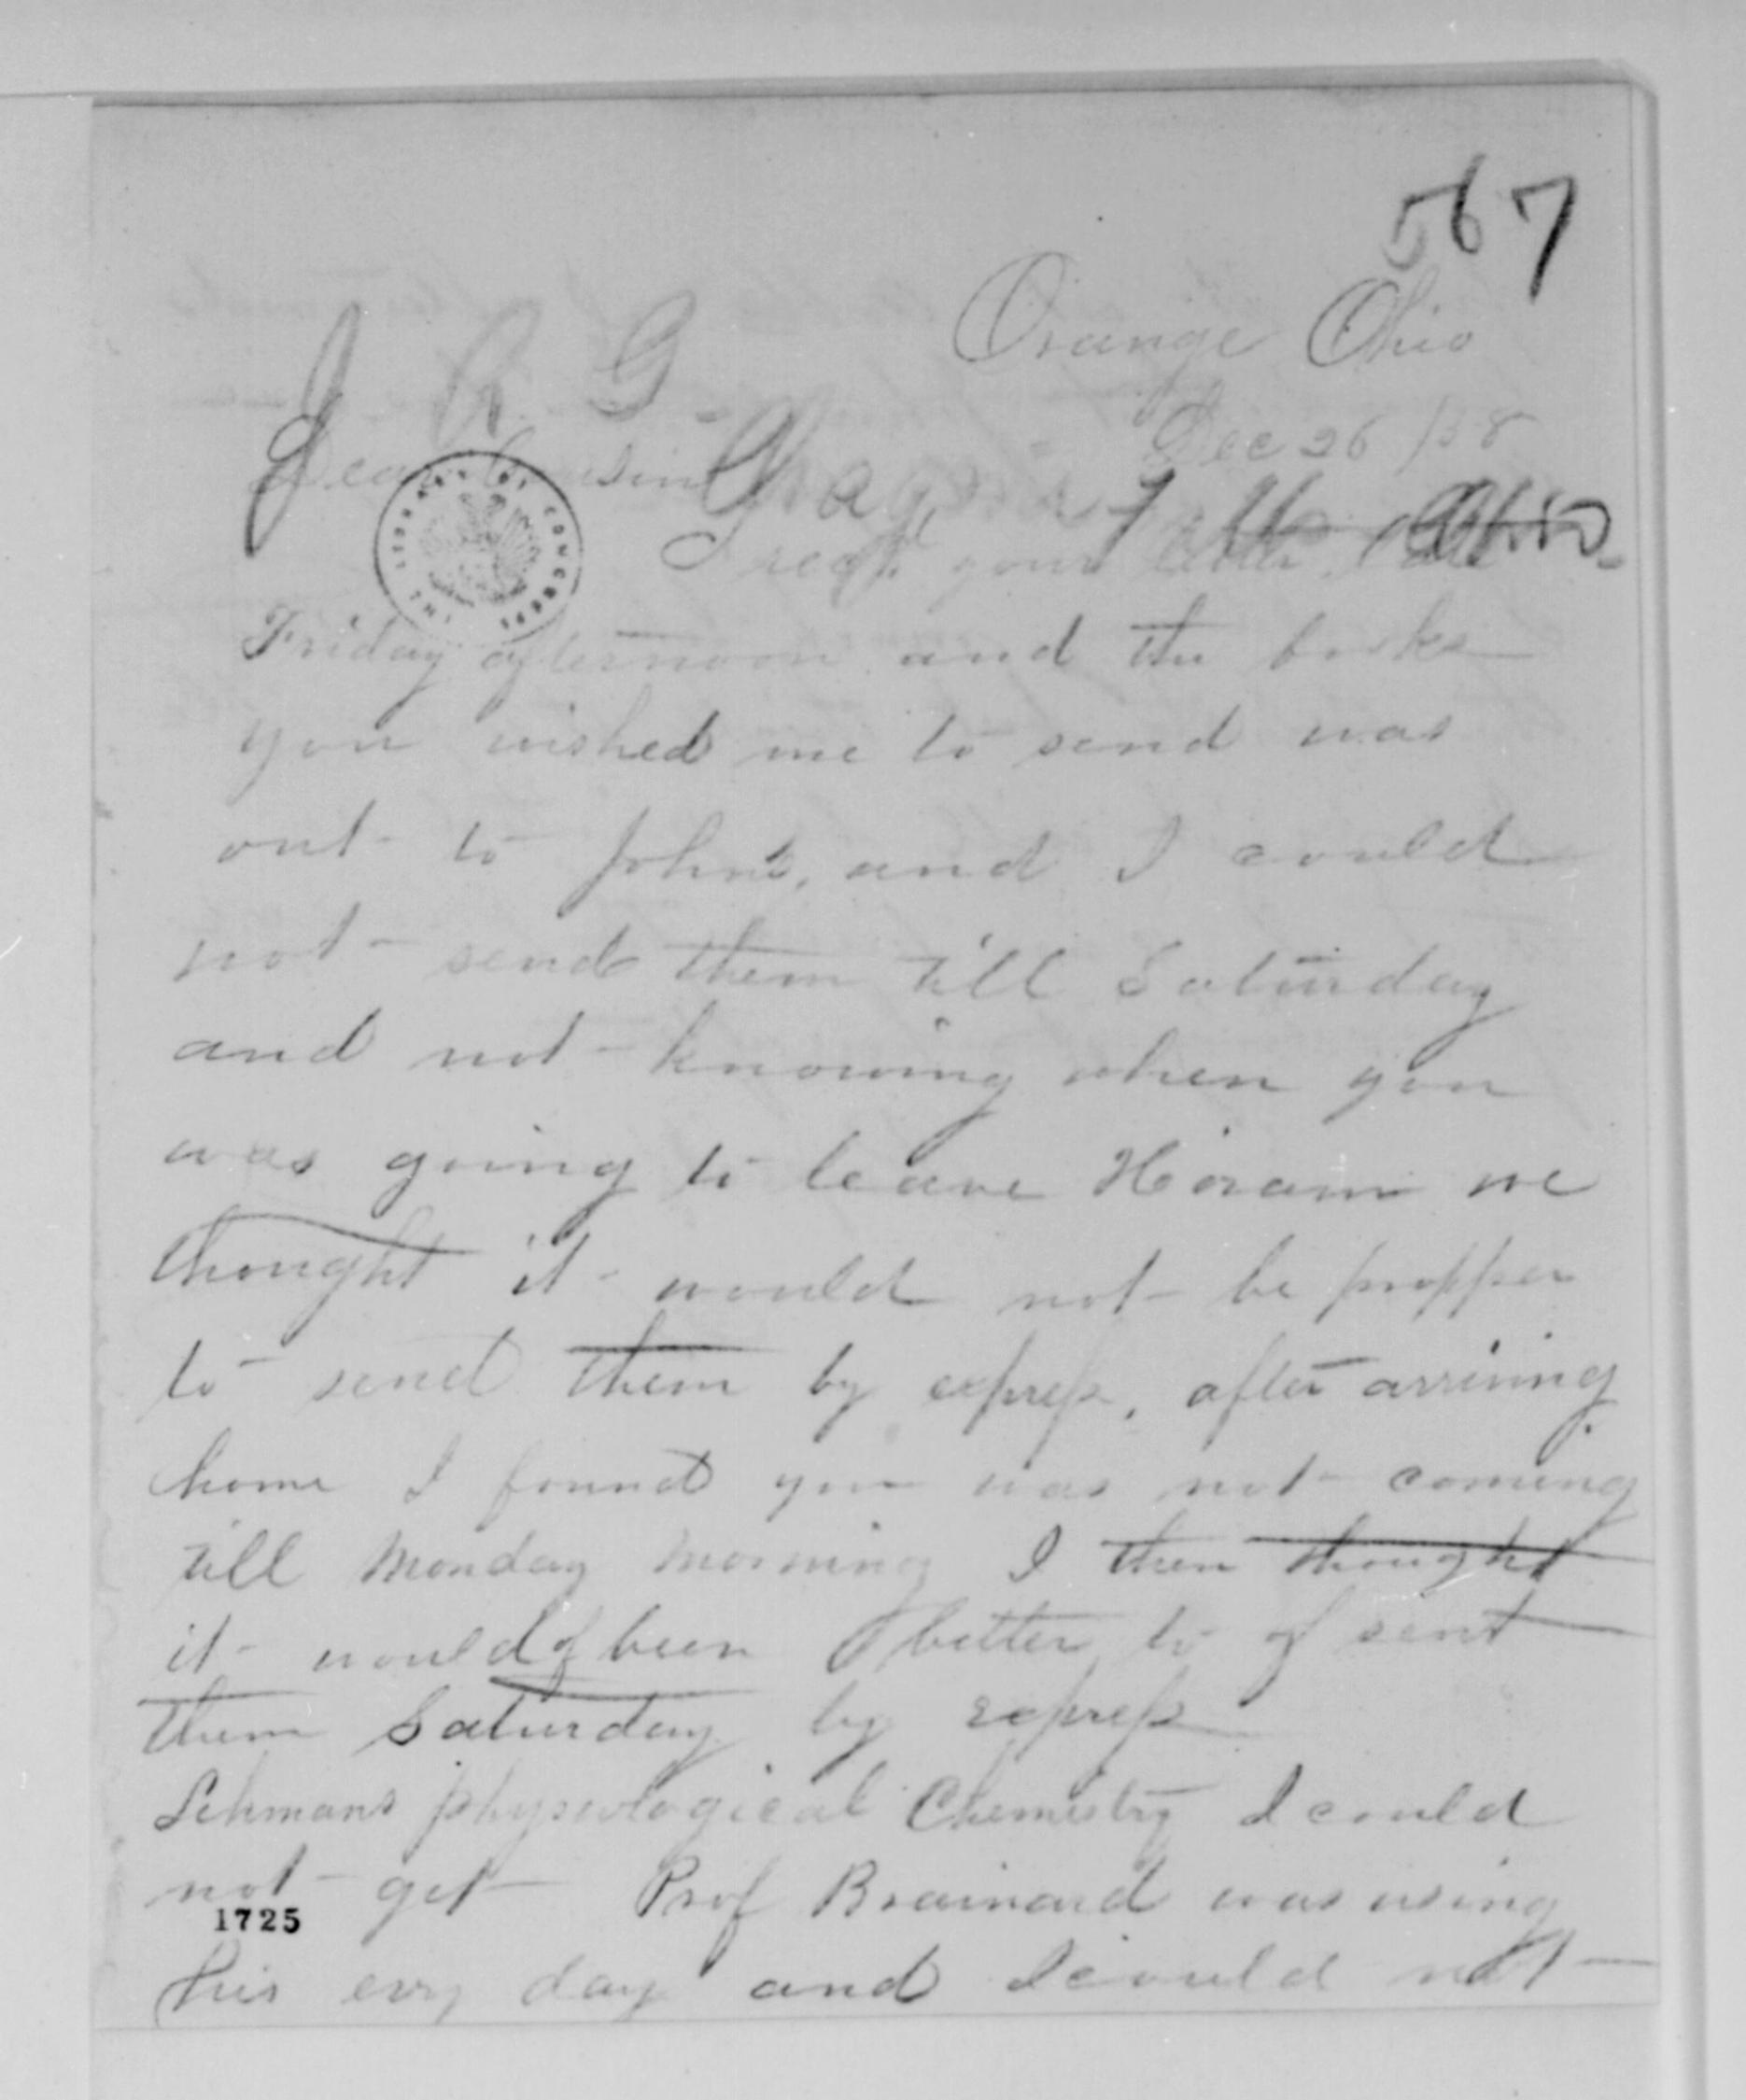 567
Orange Ohio
Dec 26 /58
J. A. G.
Dear Cousin
Chagrin Falls Ohio
THE LIBRARY OF CONGRESS
I recd. your letter
Friday afternoon and the books
you wished me to send was
out to John's, and I could
not send them till Saturday
and not knowing when you
was going to leave Hiram we
thought it would not be propper
to send them by express, after arriving
home I found you was not coming
till Monday morning I then thought
it would of been better to of sent
them Saturday by express
Lehmans physiological Chemistry I could
not get Prof Brainard was using
his evry day and I could not
1725